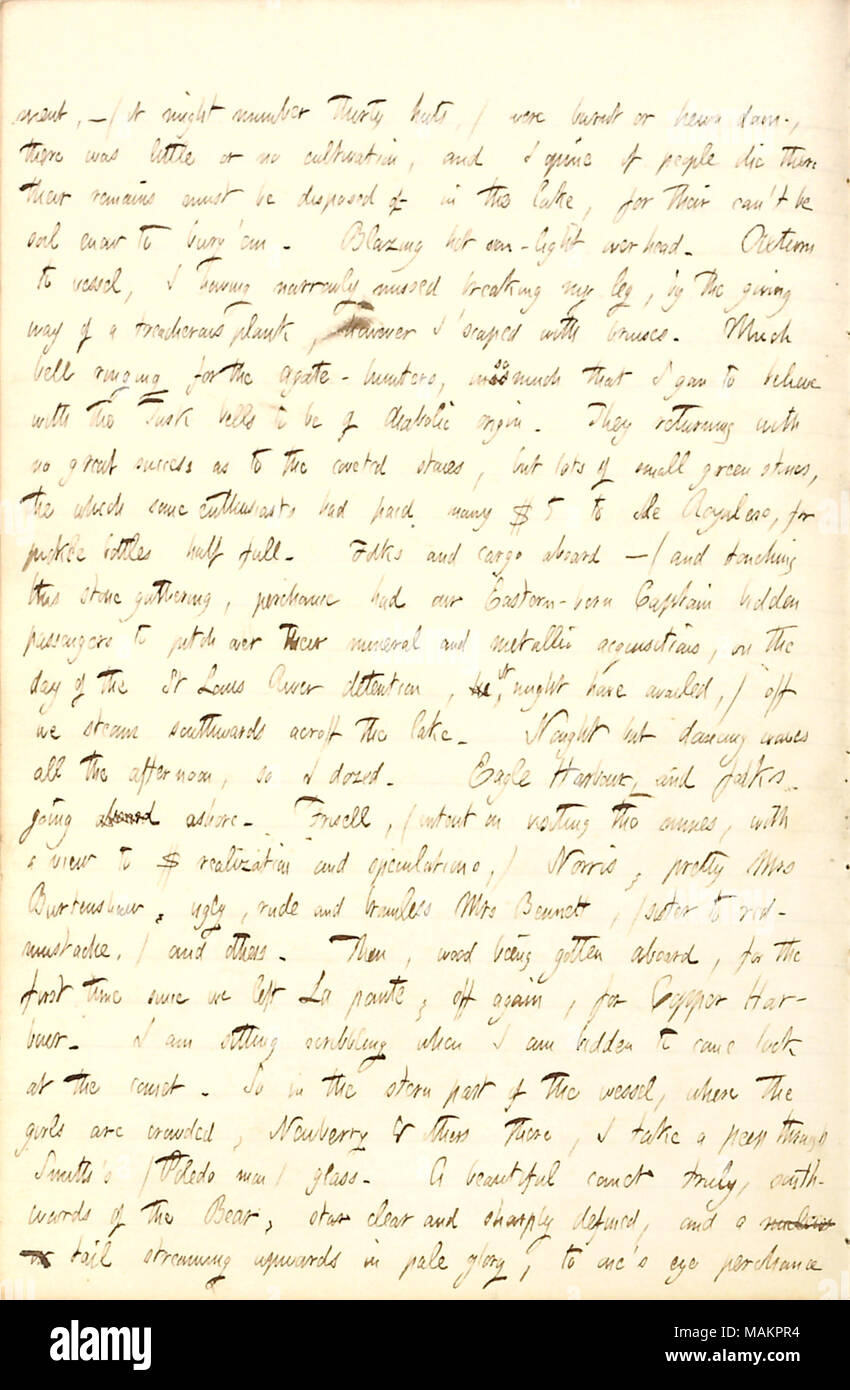 ment, - ( it might number thirty huts, ) were burnt or hewn down,
there was little or no cultivation, and I opine if people die there
their remains must be disposed of in the lake, for their can't be
soil enow to bury 'em. Blazing hot sun-light over head. Return
to vessel, I having narrowly missed breaking my leg, by the giving
way of a treacherous plank, however I 'scaped with bruises. Much
bell ringing for the agate-hunters, insomuch that I gan to believe
with the Turk bells to be of diabolic origin. They returning with
no great success as to the coveted stones, but lots of small green stones,
the which some enthusiasts had paid many $5 to Isle Royalers, for
pickle bottles half full. Folks and cargo aboard - ( and touching
this stone gathering, perchance had our Eastern-born Captain bidden
passengers to pitch over their mineral and metallic acquisitions, on the
day of the St Louis River detention, he, it might have availed, ) off
we steam southwards across the lake. Nought but dancing waves
all the afternoon, so I dozed. Eagle Harbour, and folks
going aboard ashore. Frisell, ( intent on visiting the mines, with
a view to $ realization and speculations, ) Norris, pretty Mrs
Burtenshaw, ugly, rude and brainless Mrs Bennett, ( sister to red-
mustache, ) and others. Then, wood being gotten aboard, for the
first time since we left La pointe, off again, for Copper Har-
bour. I am sitting scribbling when I am bidden to come look
at the comet. So in the stern part of the vessel, where the
girls are crowded, Newberry & others there, I take a peep through
Smith's ( Toledo man ) glass. A beautiful comet truly, south-
wards of the Bear, star clear and sharply defined, and a
tail streaming upwards in pale glory, to one's eye perchance
alamy
Image ID: MAKPR4
www.alamy.com